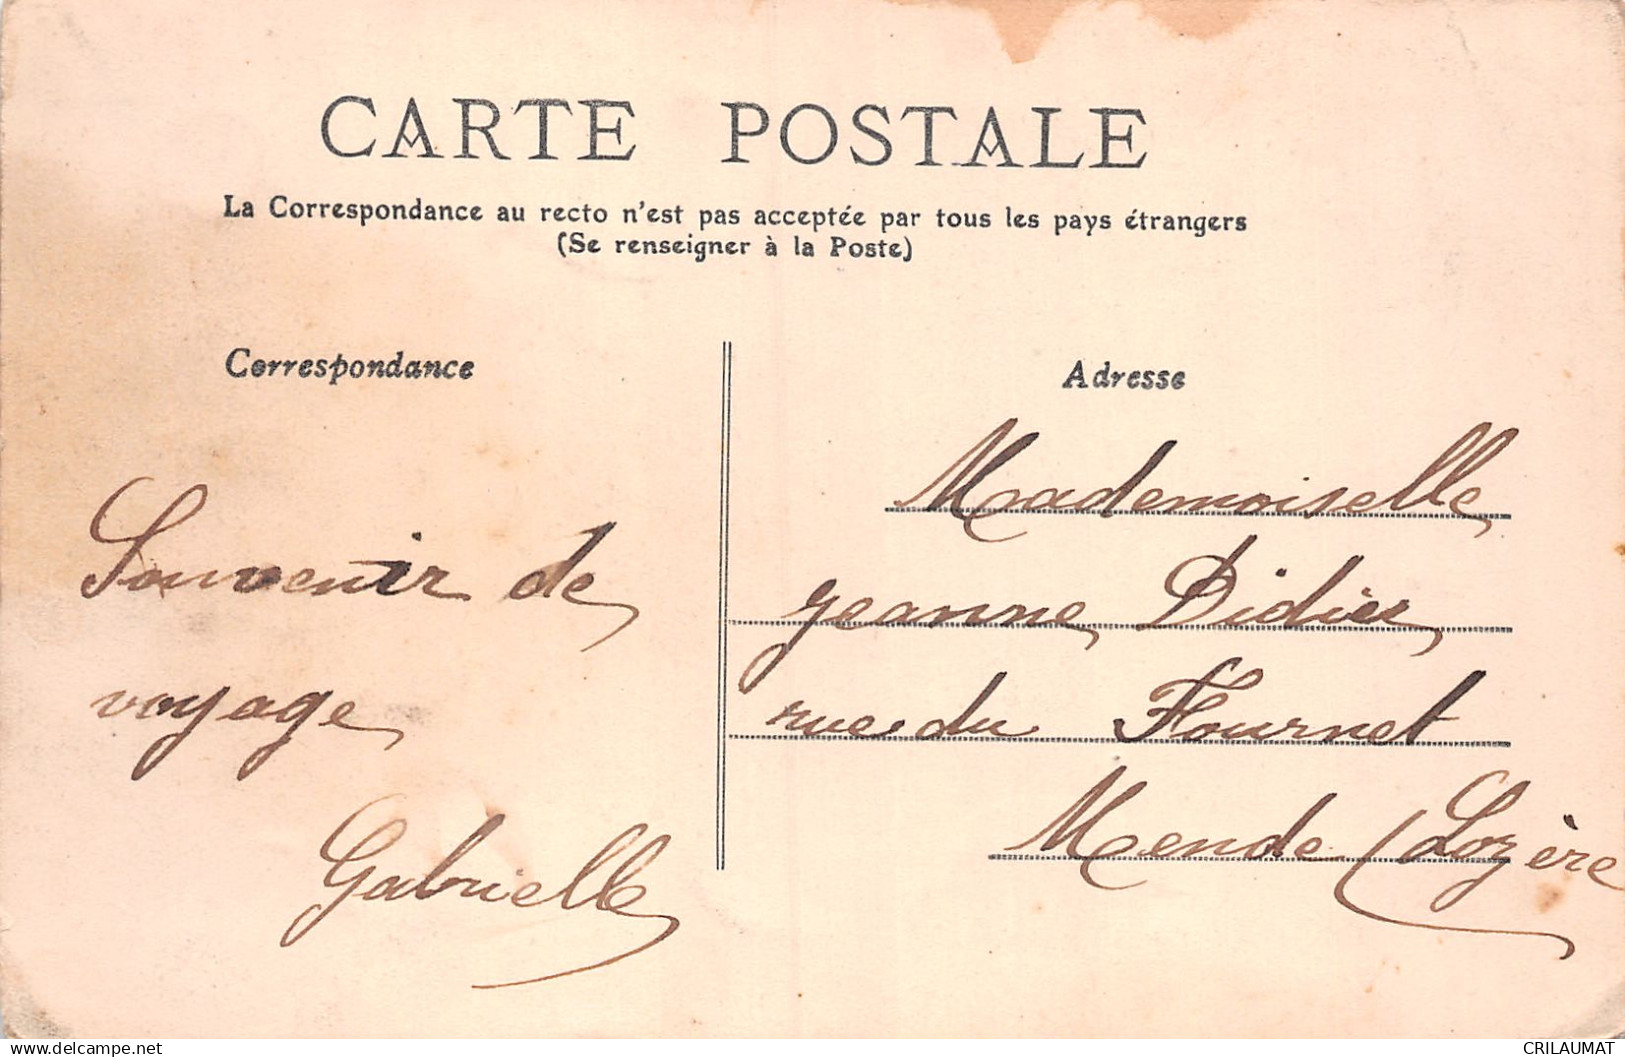 CARTE POSTALE
La Correspondance au recto n'est pas acceptée par tous les pays étrangers
(Se renseigner à la Poste)
Correspondance
Souvenir de
voyage
Gabrielle
Adresse
Mademoiselle
Jeanne Didier
rue du Fournet
Mende (Lozère
www.delcampe.net
CRILAUMAT